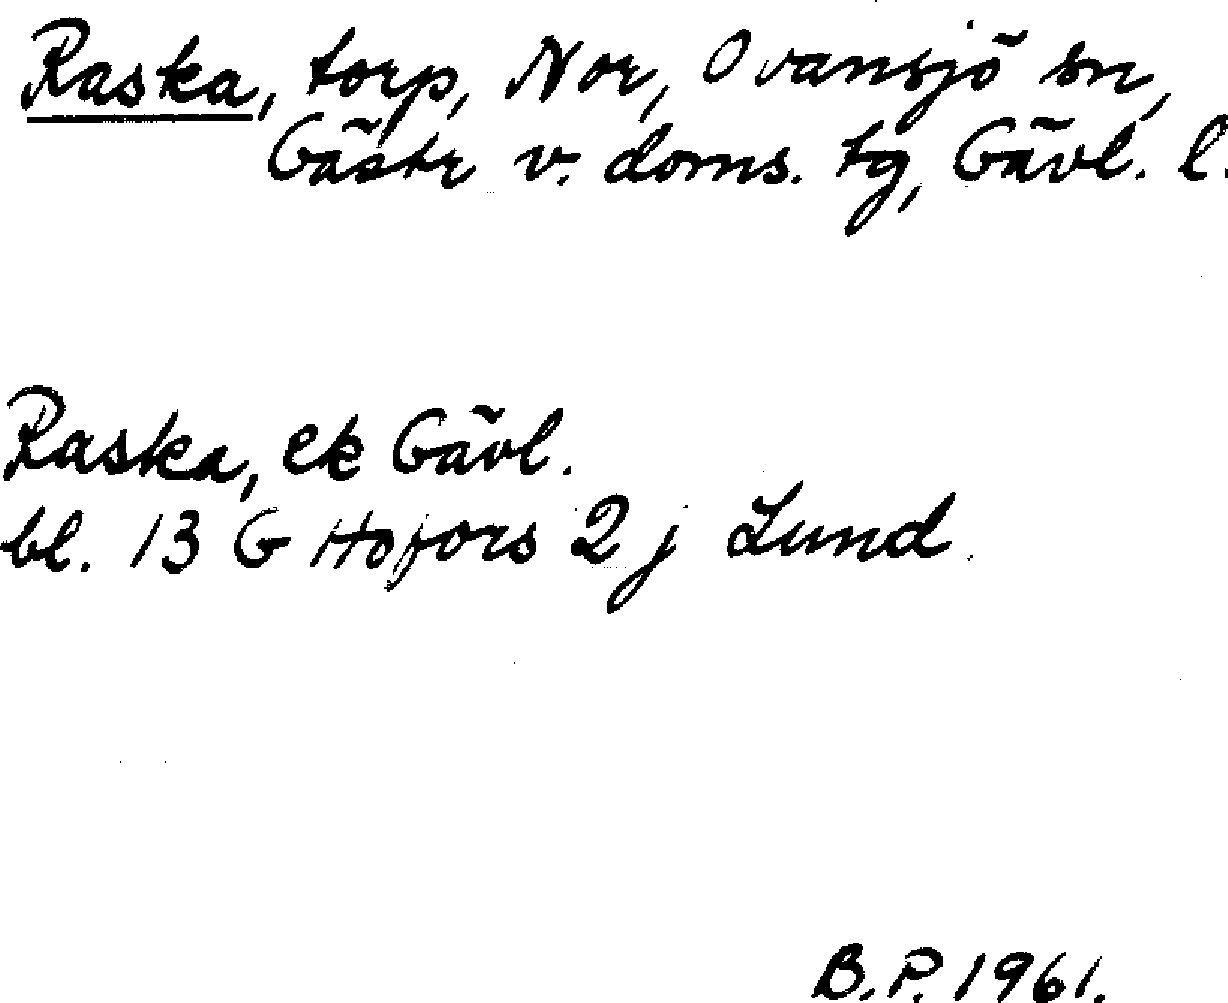 Raska, torp, Nor, Ovansjö sn,
Gästr v. doms. tg, Gävl. l.
Raska, ek Gävl.
bl. 13 G Hofors 2 j Lund
B.P. 1961.